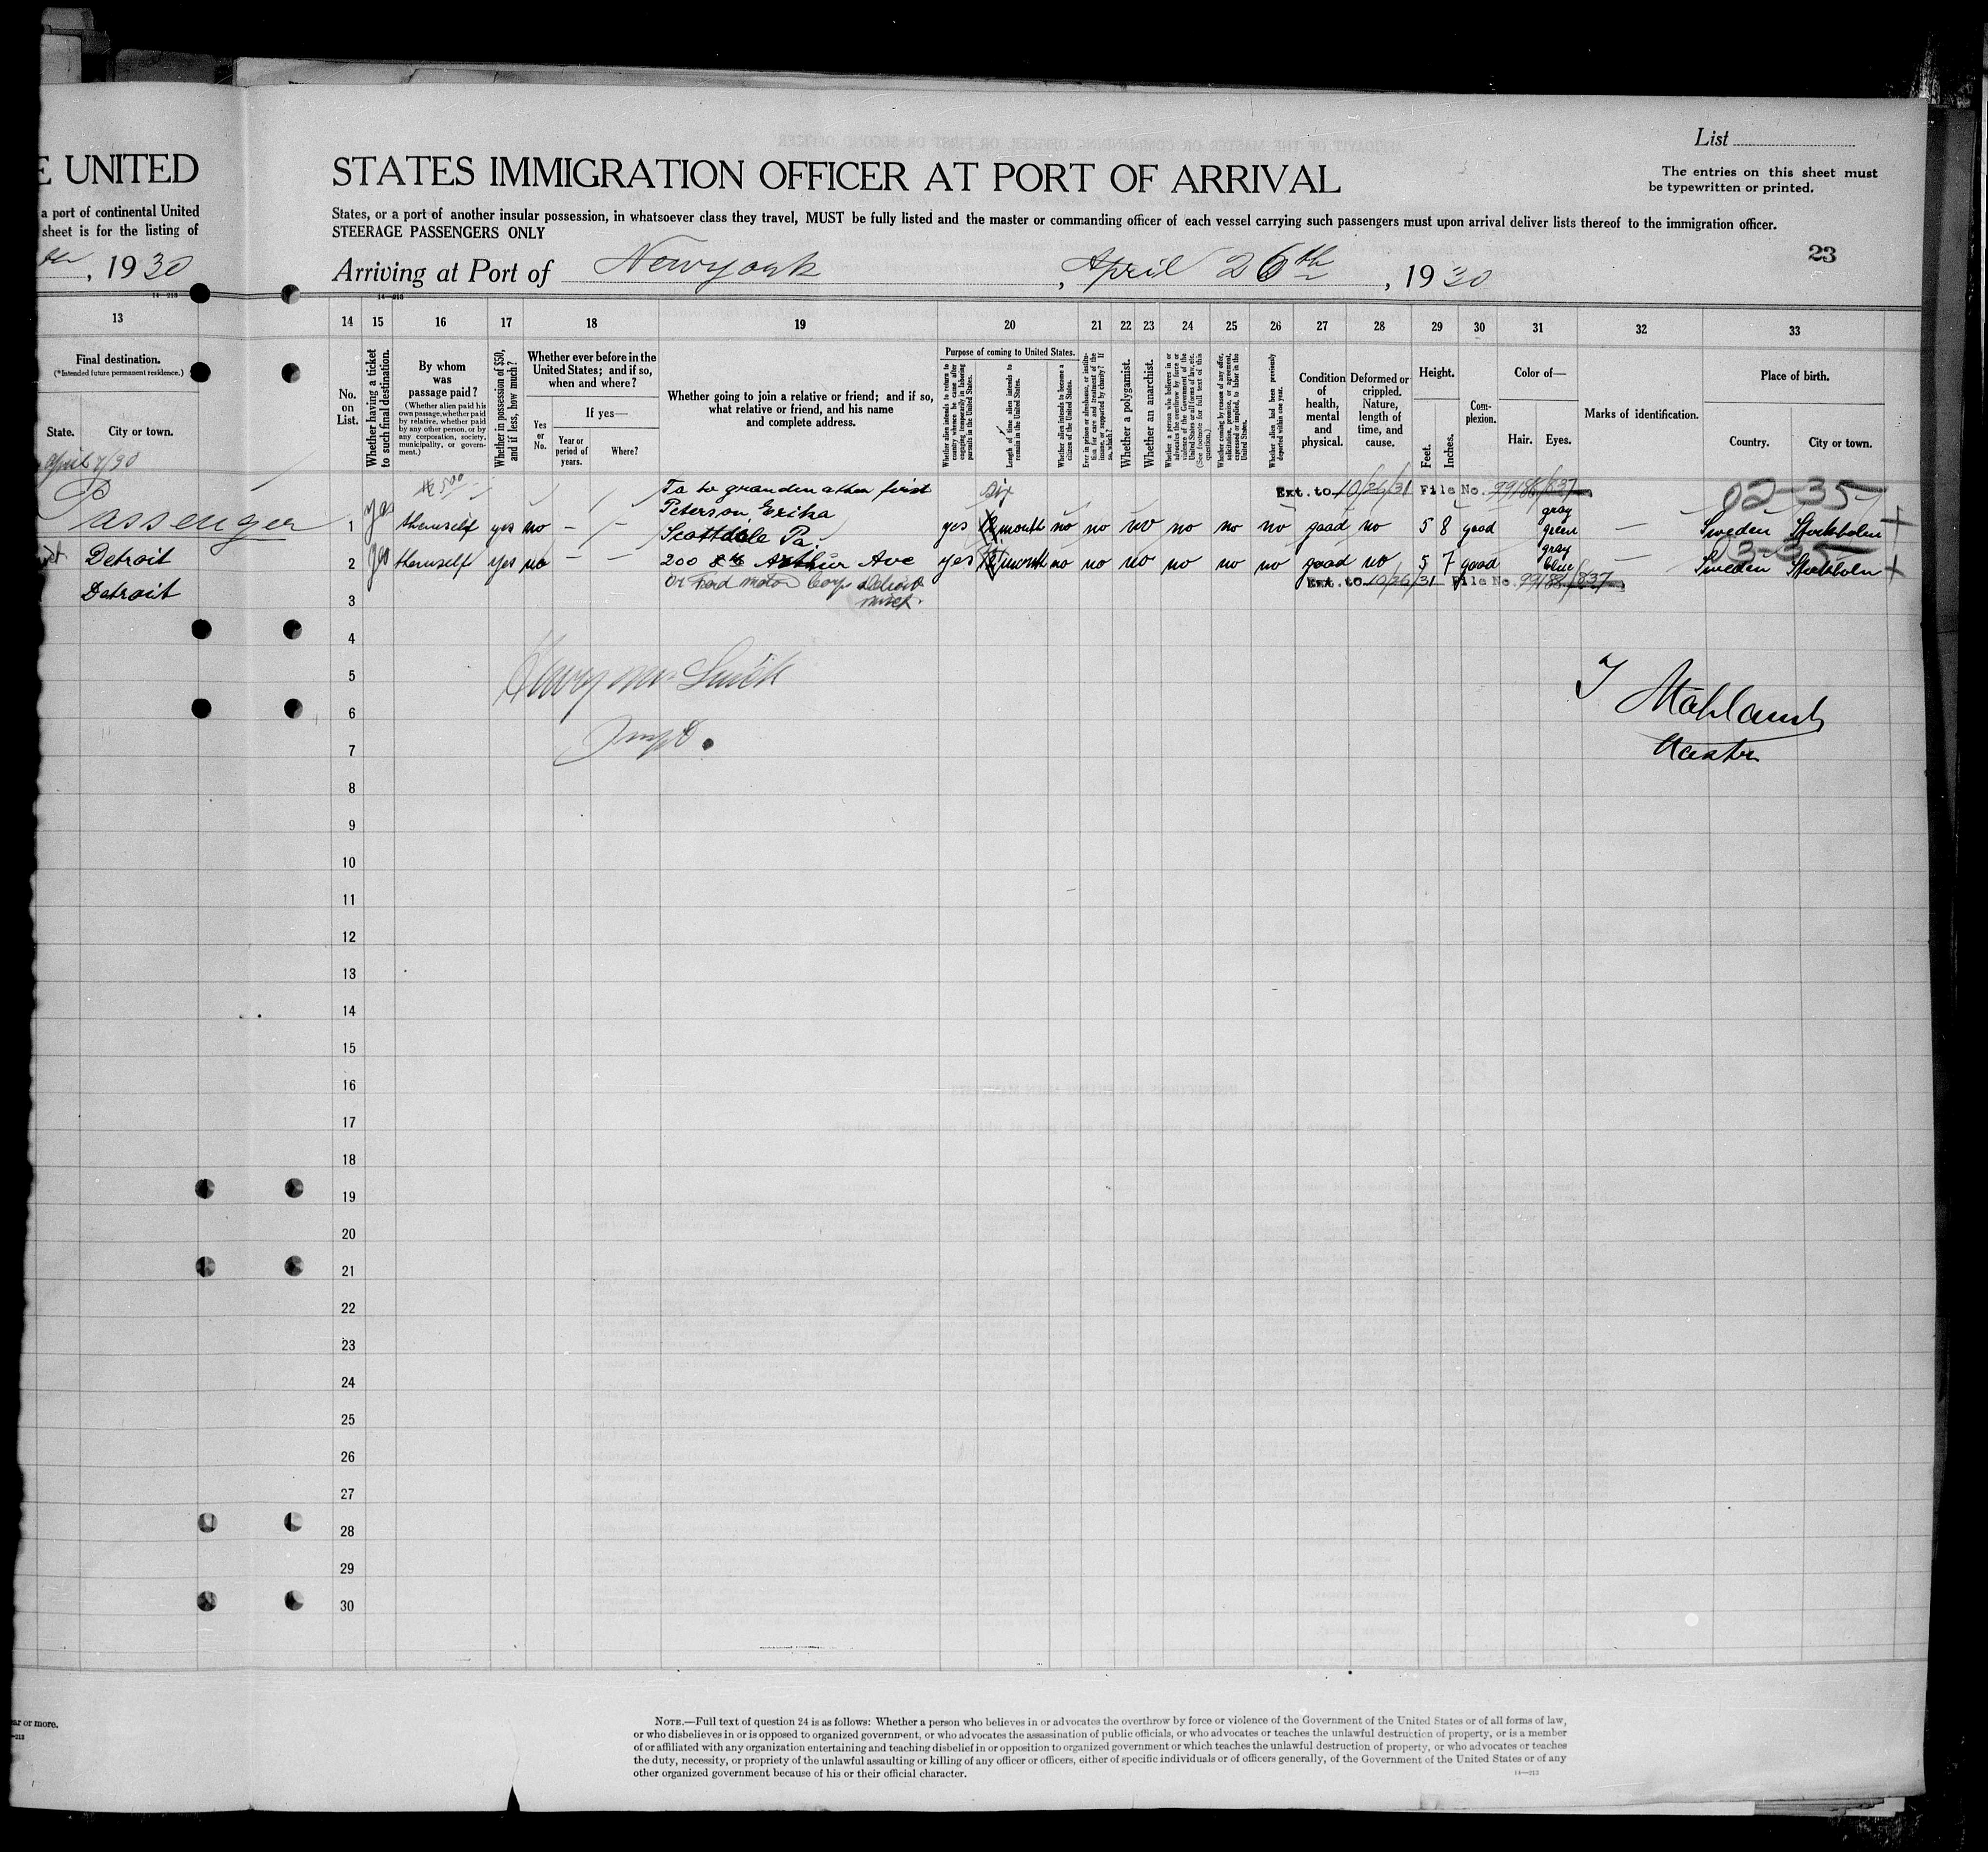 List
E UNITED STATES IMMIGRATION OFFICER AT PORT OF ARRIVAL
The entries on this sheet must
be typewritten or printed.
a port of continental United
sheet is for the listing of
States, or a port of another insular possession, in whatsoever class they travel, MUST be fully listed and the master or commanding officer of each vessel carrying such passengers must upon arrival deliver lists thereof to the immigration officer.
STEERAGE PASSENGERS ONLY
23
, 1930
Arriving at Port of Newyork, April 26th, 1930
14—213
14—213
13 14 15 16 17 18 19 20 21 22 23 24 25 26 27 28 29 30 31 32 33
Final destination.
(*Intended future permanent residence.)
State.
City or town.
No. on List.
Whether having a ticket to such final destination.
By whom was passage paid?
(Whether alien paid his own passage, whether paid by relative, whether paid by any other person, or by any corporation, society, municipality, or government.)
Whether in possession of $50, and if less, how much?
Whether ever before in the United States; and if so, when and where?
If yes—
Yes or No.
Year or period of years.
Where?
Whether going to join a relative or friend; and if so, what relative or friend, and his name and complete address.
Purpose of coming to United States.
Whether alien intends to return to country whence he came after engaging temporarily in laboring pursuits in the United States.
Length of time alien intends to remain in the United States.
Whether alien intends to become a citizen of the United States.
Ever in prison or almshouse, or institution for care and treatment of the insane, or supported by charity? If so, which?
Whether a polygamist.
Whether an anarchist.
Whether a person who believes in or advocates the overthrow by force or violence of the Government of the United States or all forms of law, etc. (See footnote for full text of this question.)
Whether coming by reason of any offer, solicitation, promise, or agreement, expressed or implied, to labor in the United States.
Whether alien had been previously deported within one year.
Condition of health, mental and physical.
Deformed or crippled. Nature, length of time, and cause.
Height.
Feet.
Inches.
Complexion.
Color of—
Hair.
Eyes.
Marks of identification.
Place of birth.
Country.
City or town.
April 7/30
Passenger
500
six
Ext. to 10/26/31 File No. 99186/837
02-35
Peterson Erika
gray
1 yes themself yes no — — Scottdale Pa. yes month no no no no no no good no 5 8 good green — Sweden Stockholm
3-35
Detroit
gray
2 yes themself yes no — — 200 Arthur Ave yes month no no no no no no good no 5 7 good blue — Sweden Stockholm
Or Ford motor Corp Detroit
Ext. to 10/26/31 File No. 99186/837
Detroit
3
4
5
6
7
Master
8
9
10
11
12
13
14
15
16
17
18
19
20
21
22
23
24
25
26
27
28
29
30
ar or more.
—213
NOTE.—Full text of question 24 is as follows: Whether a person who believes in or advocates the overthrow by force or violence of the Government of the United States or of all forms of law,
or who disbelieves in or is opposed to organized government, or who advocates the assassination of public officials, or who advocates or teaches the unlawful destruction of property, or is a member
of or affiliated with any organization entertaining and teaching disbelief in or opposition to organized government or which teaches the unlawful destruction of property, or who advocates or teaches
the duty, necessity, or propriety of the unlawful assaulting or killing of any officer or officers, either of specific individuals or of officers generally, of the Government of the United States or of any
other organized government because of his or their official character.
14—213